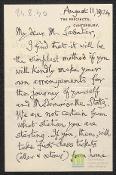 August 11, 1924
THE PRECINCTS,
CANTERBURY.
My dear Mr.
I find that it will be
the simplest method if you
will kindly make your
own arrangements for
the journey of yourself
and
We are not certain from
what station you are
starting. If you, then, will
take first class tickets
(there & return) from